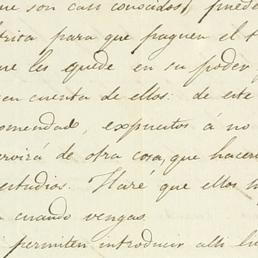 que son casi conocidos, puede
trita para que paguen el t
ue les quede en su poder
en cuenta de ellos: de este
omendad, expuestos á no
ervirá de otra cosa, que hacer
estudios. Haré que ellos
cuando vengas.
i permiten introducir alli